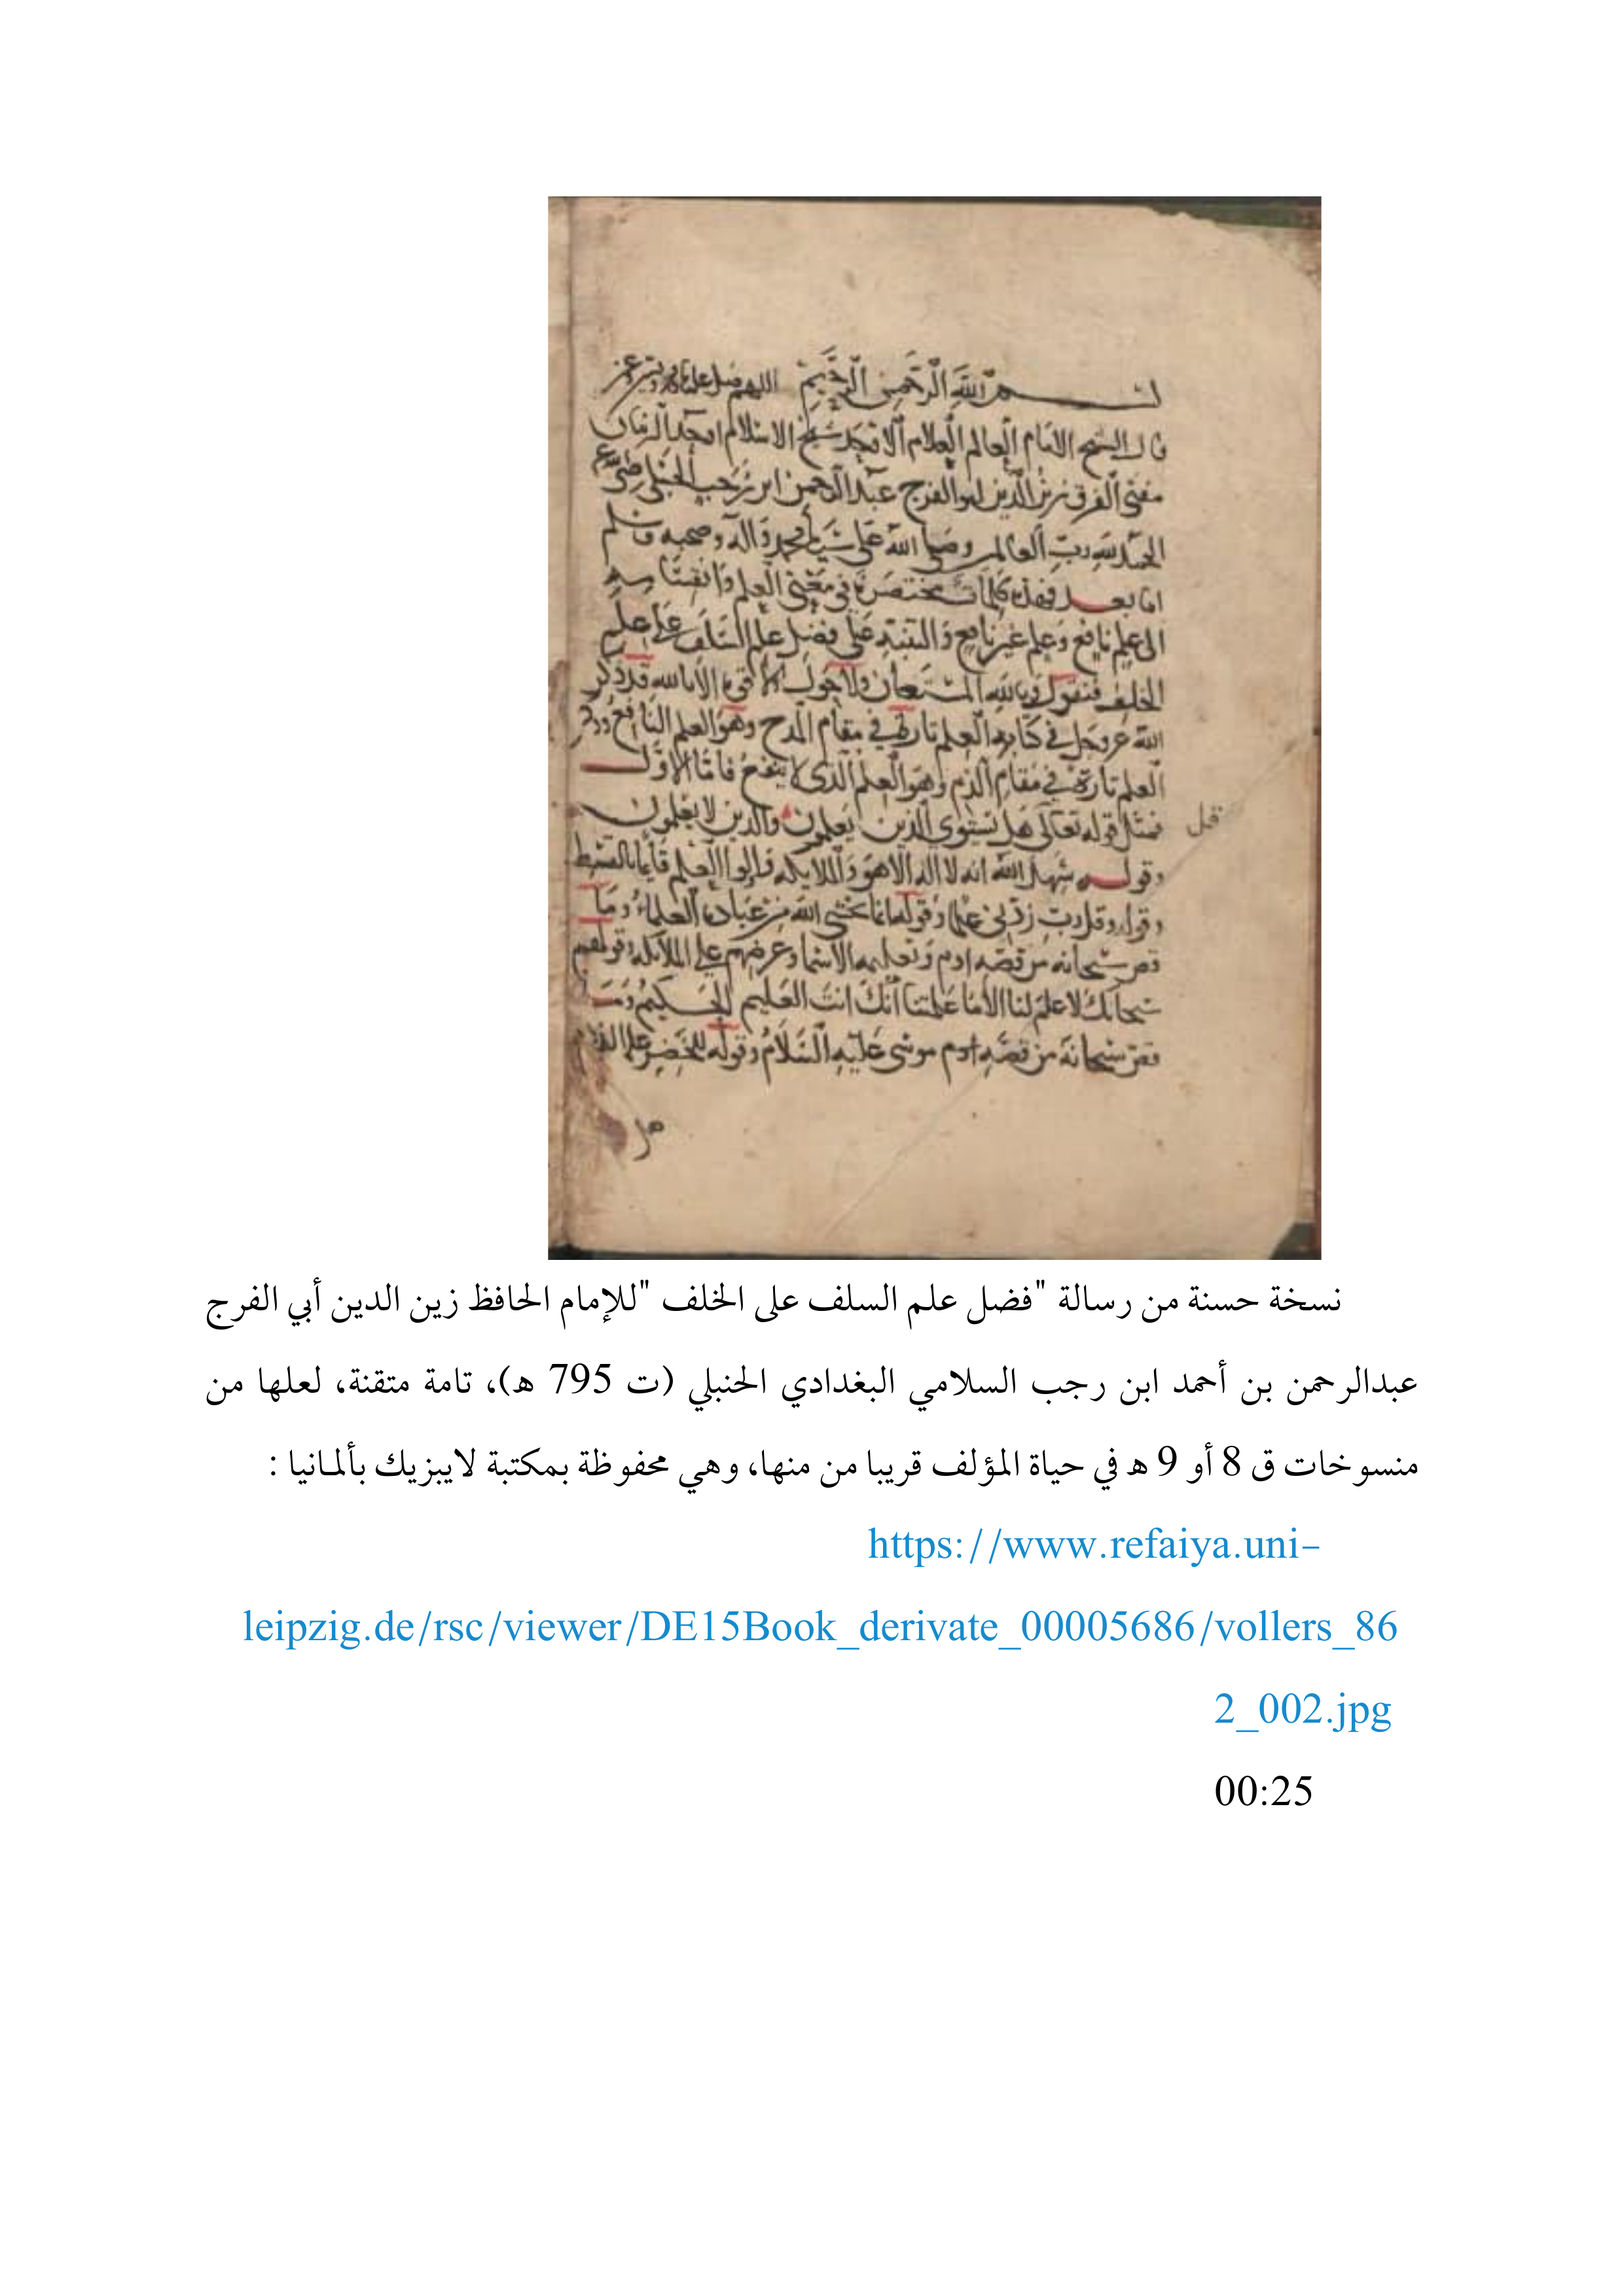 بسم الله الرحمن الرحيم اللهم صل على
قال الشيخ الامام العالم العلام الاوحد شيخ الاسلام اوحد الزمان
مفتى الفرق زين الدين ابو الفرج عبد الرحمن ابن رجب الحنبلي
الحمد لله رب العالمين وصلى الله على سيدنا محمد واله وصحبه وسلم
اما بعد فهذه كلمات مختصرة في معنى العلم وانقسامه
الى علم نافع وعلم غير نافع والتنبيه على فضل علم السلف على علم
الخلف فنقول وبالله المستعان ولا حول ولا قوة الا بالله قد ذكر
الله عز وجل في كتابه العلم تارة في مقام المدح وهو العلم النافع وذكر
العلم تارة في مقام الذم وهو العلم الذى لا ينفع فاما الاول
فمثل قوله تعالى هل يستوى الذين يعلمون والذين لا يعلمون
قل
وقوله شهد الله انه لا اله الا هو والملايكه واولوا العلم قايما بالقسط
وقوله وقل رب زدني علما وقوله انما يخشى الله من عباده العلماء وما
قص سبحانه من قصه ادم وتعليمه الاسما وعرضهم على الملايكه وقولهم
سبحانك لا علم لنا الا ما علمتنا انك انت العليم الحكيم وما
قص سبحانه من قصه ادم موسى عليه السلام وقوله للخضر
نسخة حسنة من رسالة "فضل علم السلف على الخلف "للإمام الحافظ زين الدين أبي الفرج
عبدالرحمن بن أحمد ابن رجب السلامي البغدادي الحنبلي (ت 795 هـ)، تامة متقنة، لعلها من
منسوخات ق 8 أو 9 هـ في حياة المؤلف قريبا من منها، وهي محفوظة بمكتبة لايبزيك بألمانيا :
https://www.refaiya.uni-
leipzig.de/rsc/viewer/DE15Book_derivate_00005686/vollers_86
2_002.jpg
00:25